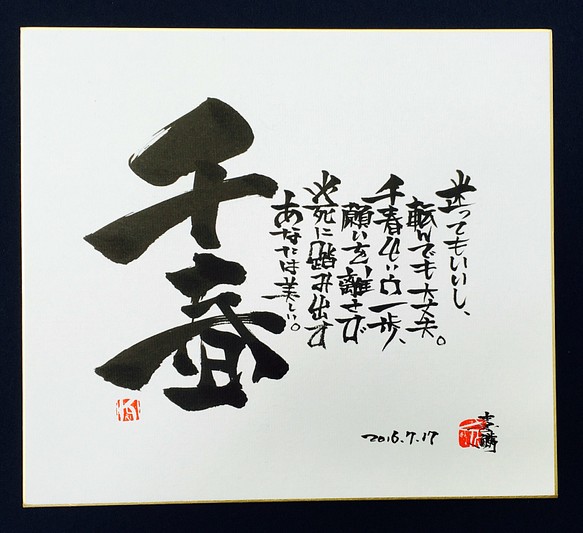 迷ってもいいし、
転んでも大丈夫。
千春 一歩、
願いを離さず
必死に踏み出す
あなたは美しい。
千春
2016.7.17